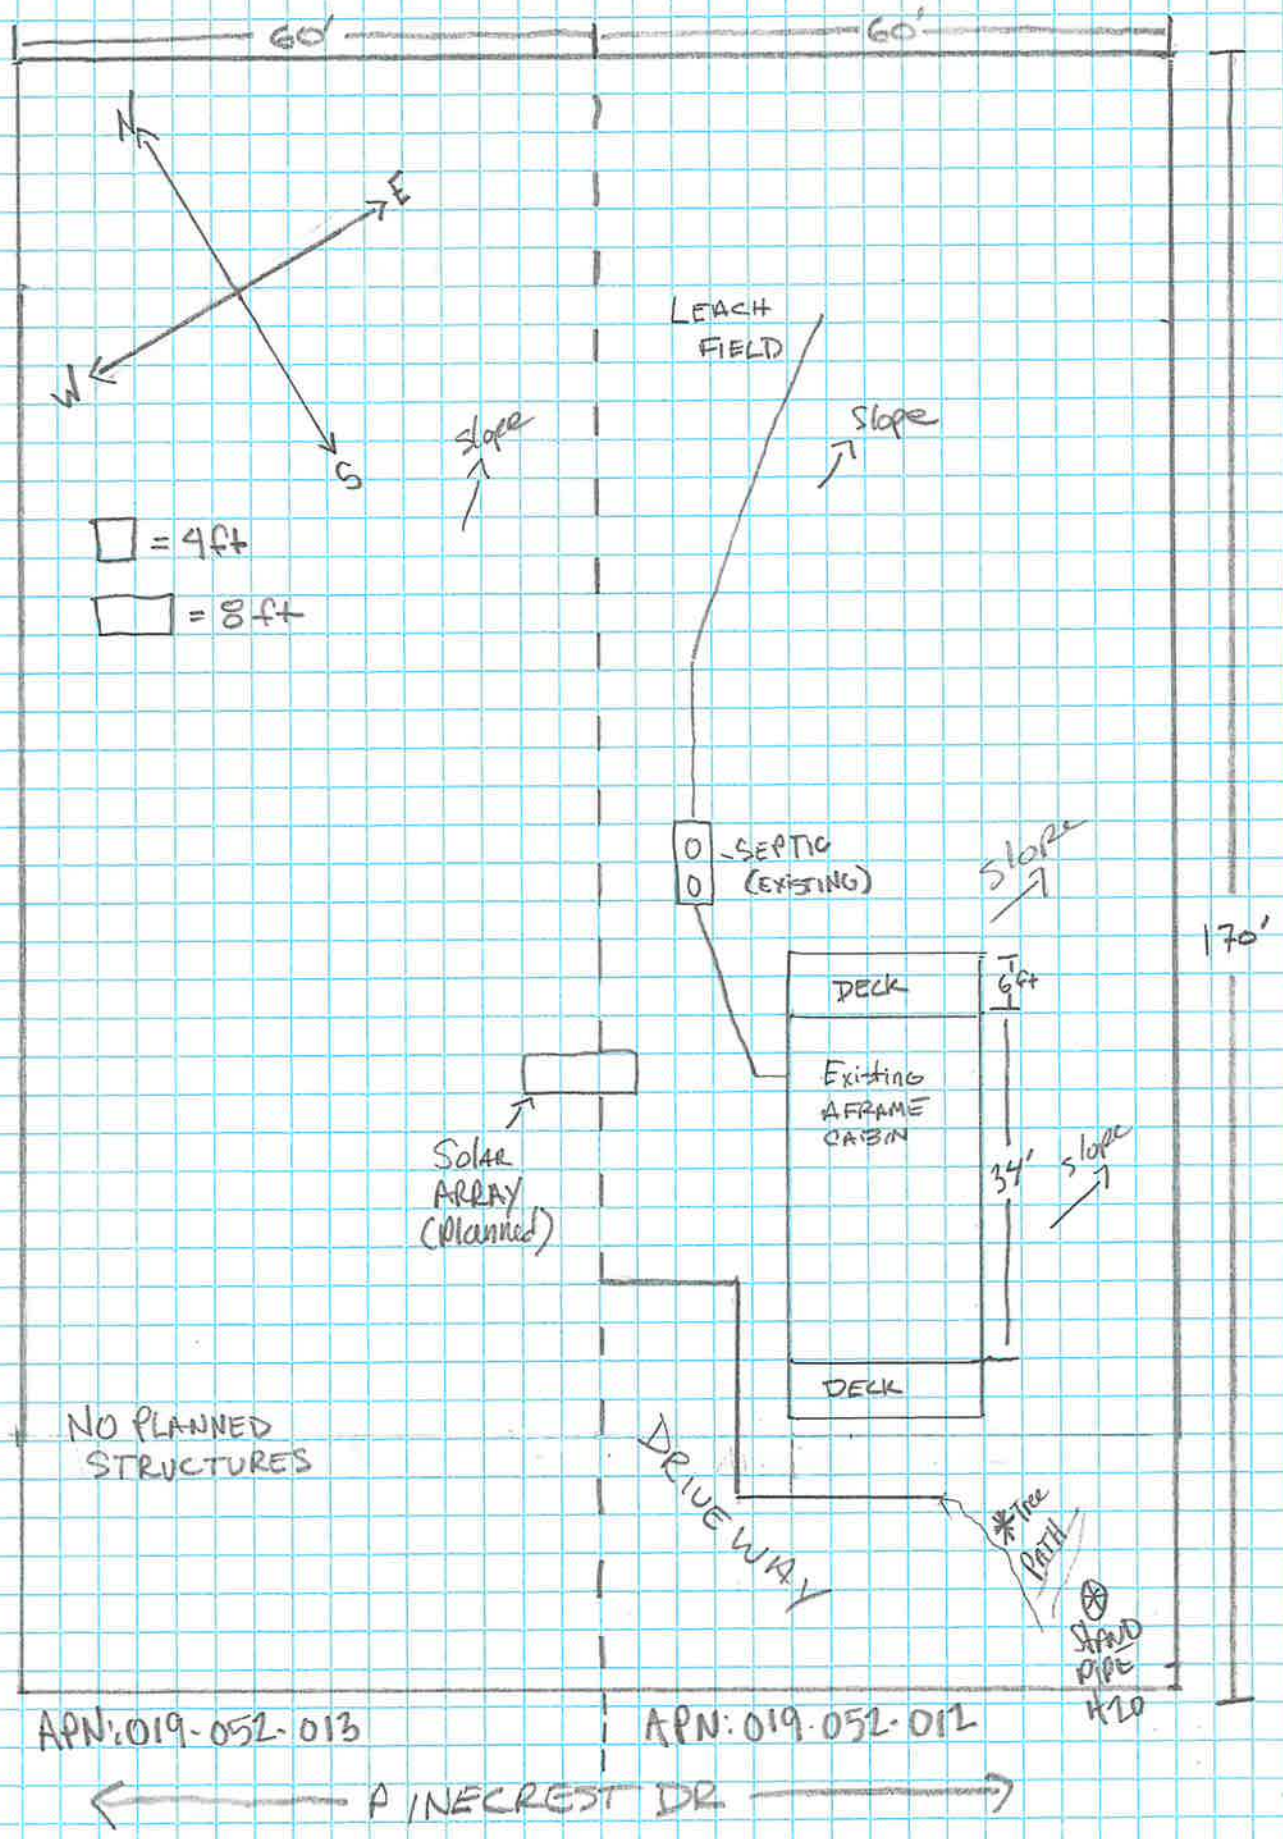 60'
60'
N
E
W
S
LEACH
FIELD
slope
Slope
= 4ft
= 8ft
SEPTIC
(EXISTING)
Slope
170'
DECK
6 ft
Existing
AFRAME
CABIN
34'
slope
SOLAR
ARRAY
(planned)
DECK
NO PLANNED
STRUCTURES
DRIVEWAY
Tree
PATH
STAND
PIPE
H20
APN: 019-052-013
APN: 019-052-012
PINECREST DR